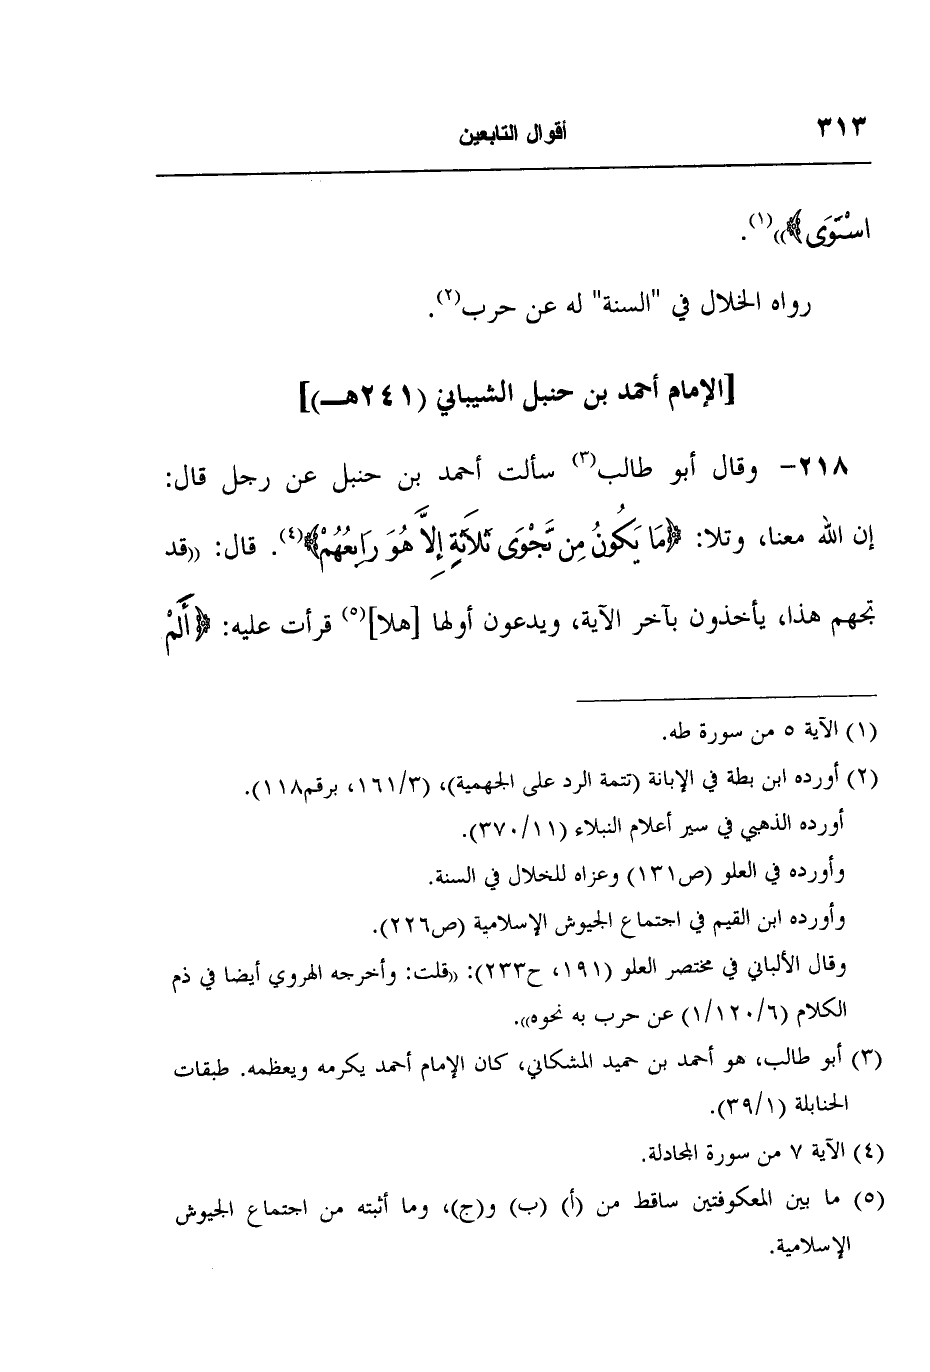 ٣١٣
أقوال التابعين
اسْتَوَى﴾))(١).
رواه الخلال في "السنة" له عن حرب(٢).
[الإمام أحمد بن حنبل الشيباني (٢٤١هـ)]
٢١٨- وقال أبو طالب(٣) سألت أحمد بن حنبل عن رجل قال:
إن الله معنا، وتلا: ﴿مَا يَكُونُ مِن نَّجْوَى ثَلاَثَةٍ إِلاَّ هُوَ رَابِعُهُمْ﴾(٤). قال: ((قد
تجهم هذا، يأخذون بآخر الآية، ويدعون أولها [هلا](٥) قرأت عليه: ﴿أَلَمْ
(١) الآية ٥ من سورة طه.
(٢) أورده ابن بطة في الإبانة (تتمة الرد على الجهمية)، (١٦١/٣، برقم١١٨).
أورده الذهبي في سير أعلام النبلاء (٣٧٠/١١).
وأورده في العلو (ص١٣١) وعزاه للخلال في السنة.
وأورده ابن القيم في اجتماع الجيوش الإسلامية (ص٢٢٦).
وقال الألباني في مختصر العلو (١٩١، ح٢٣٣): ((قلت: وأخرجه الهروي أيضا في ذم
الكلام (١/١٢٠/٦) عن حرب به نحوه)).
(٣) أبو طالب، هو أحمد بن حميد المشكاني، كان الإمام أحمد يكرمه ويعظمه. طبقات
الحنابلة (٣٩/١).
(٤) الآية ٧ من سورة المجادلة.
(٥) ما بين المعكوفتين ساقط من (أ) (ب) و(ج)، وما أثبته من اجتماع الجيوش
الإسلامية.